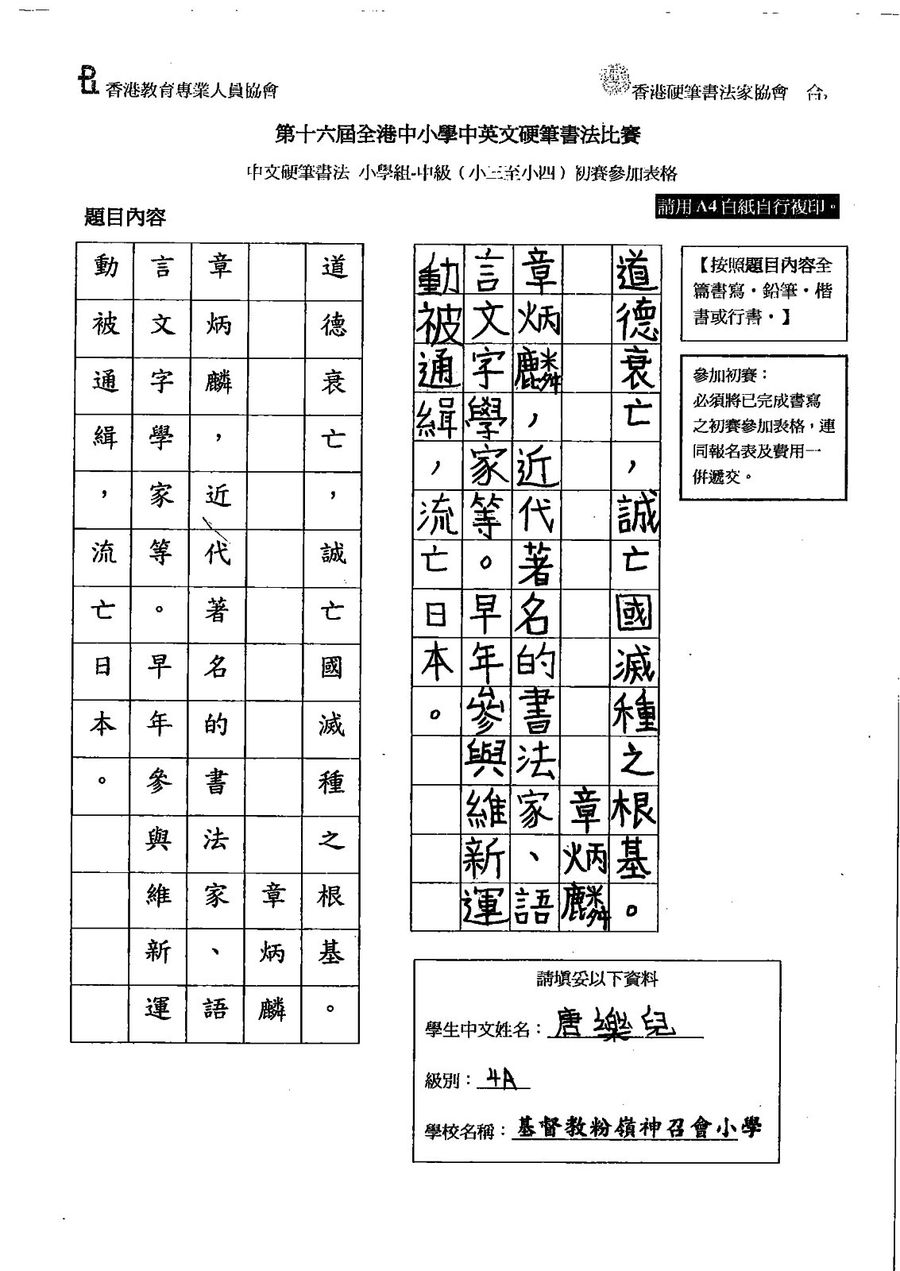 香港教育專業人員協會
香港硬筆書法家協會 合
第十六屆全港中小學中英文硬筆書法比賽
中文硬筆書法 小學組-中級（小三至小四）初賽參加表格
請用 A4 白紙自行複印。
題目內容
道德衰亡，誠亡國滅種之根基。
章炳麟
章炳麟，近代著名的書法家、語
言文字學家等。早年參與維新運
動被通緝，流亡日本。
道德衰亡，誠亡國滅種之根基。
章炳麟
章炳麟，近代著名的書法家、語
言文字學家等。早年參與維新運
動被通緝，流亡日本。
【按照題目內容全
篇書寫，鉛筆，楷
書或行書。】
參加初賽：
必須將已完成書寫
之初賽參加表格，連
同報名表及費用一
併遞交。
請填妥以下資料
學生中文姓名：唐樂兒
級別：4A
學校名稱：基督教粉嶺神召會小學